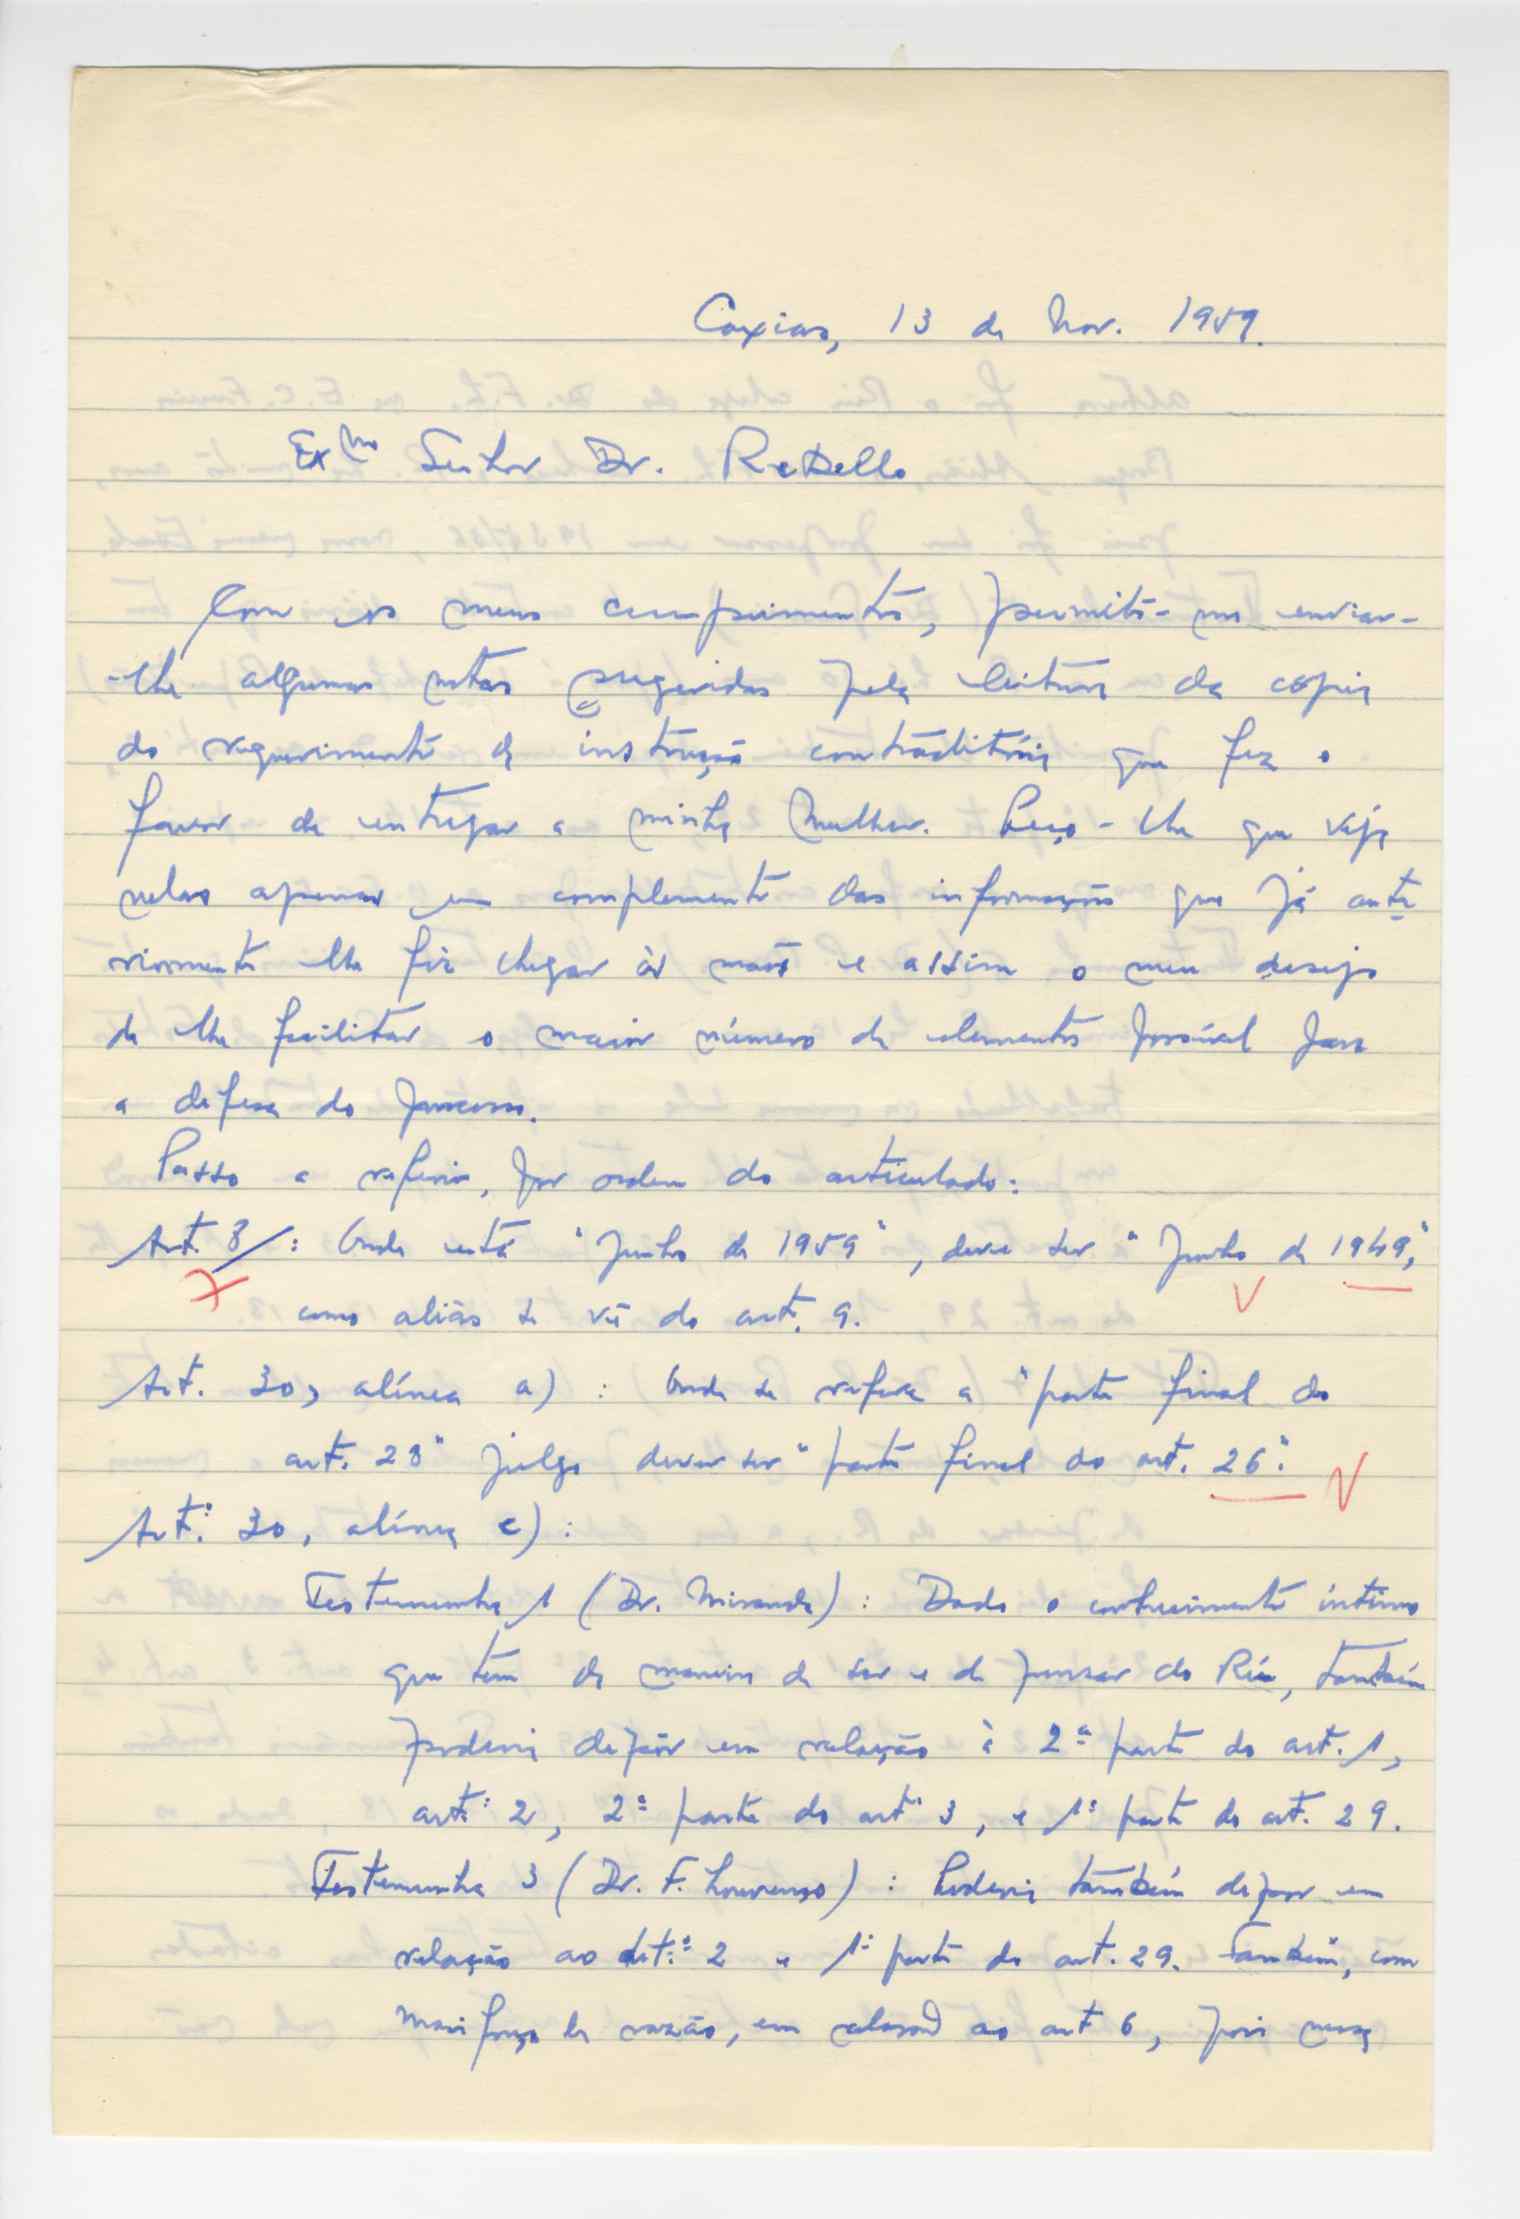 Caxias, 13 de Nov. 1959.
Exmo Senhor Dr. Rebello
Com os meus cumprimentos, permito-me enviar-
-lhe algumas notas sugeridas pela leitura da cópia
do requerimento de instrução contraditória que fez o
favor de entregar a minha Mulher. Peço-lhe que veja
nelas apenas um complemento das informações que já ante
riormente lhe fiz chegar às mãos e assim o meu desejo
de lhe facilitar o maior número de elementos possível para
a defesa do processo.
Passo a referir, por ordem do articulado:
Art. 8: Onde está "Junho de 1959", deve ser "Junho de 1949",
como aliás se vê do art. 9.
Art. 30, alínea a): Onde se refere a "parte final do
art. 28" julgo dever ser "parte final do art. 26".
Art.º 30, alínea c):
Testemunha 1 (Dr. Miranda): Dado o conhecimento íntimo
que tem da maneira de ser e de pensar do Réu, também
poderia depôr em relação à 2ª parte do art. 1,
art.º 2, 2ª parte do artº 3, e 1ª parte do art. 29.
Testemunha 3 (Dr. F. Lourenço): Poderia também depor em
relação ao art.º 2 e 1ª parte do art. 29. Também, com
mais força de razão, em relação ao art 6, pois nessa